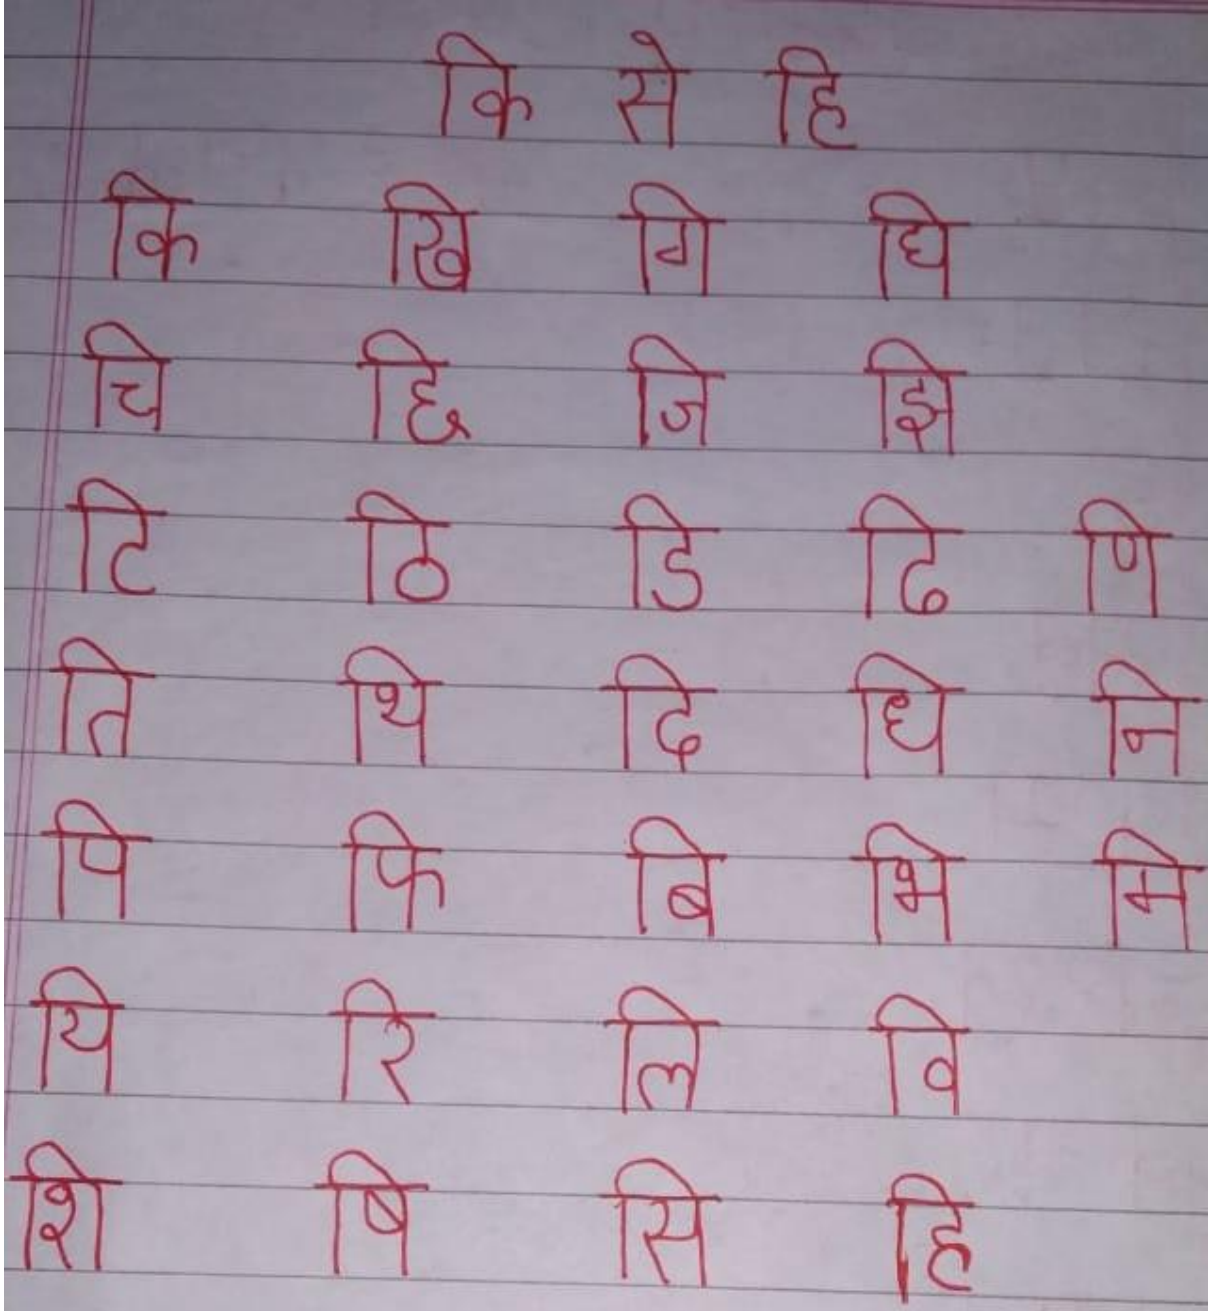 कि से हि
कि खि गि घि
चि छि जि झि
टि ठि डि ढि णि
ति थि दि धि नि
पि फि बि भि मि
यि रि लि वि
शि षि सि हि